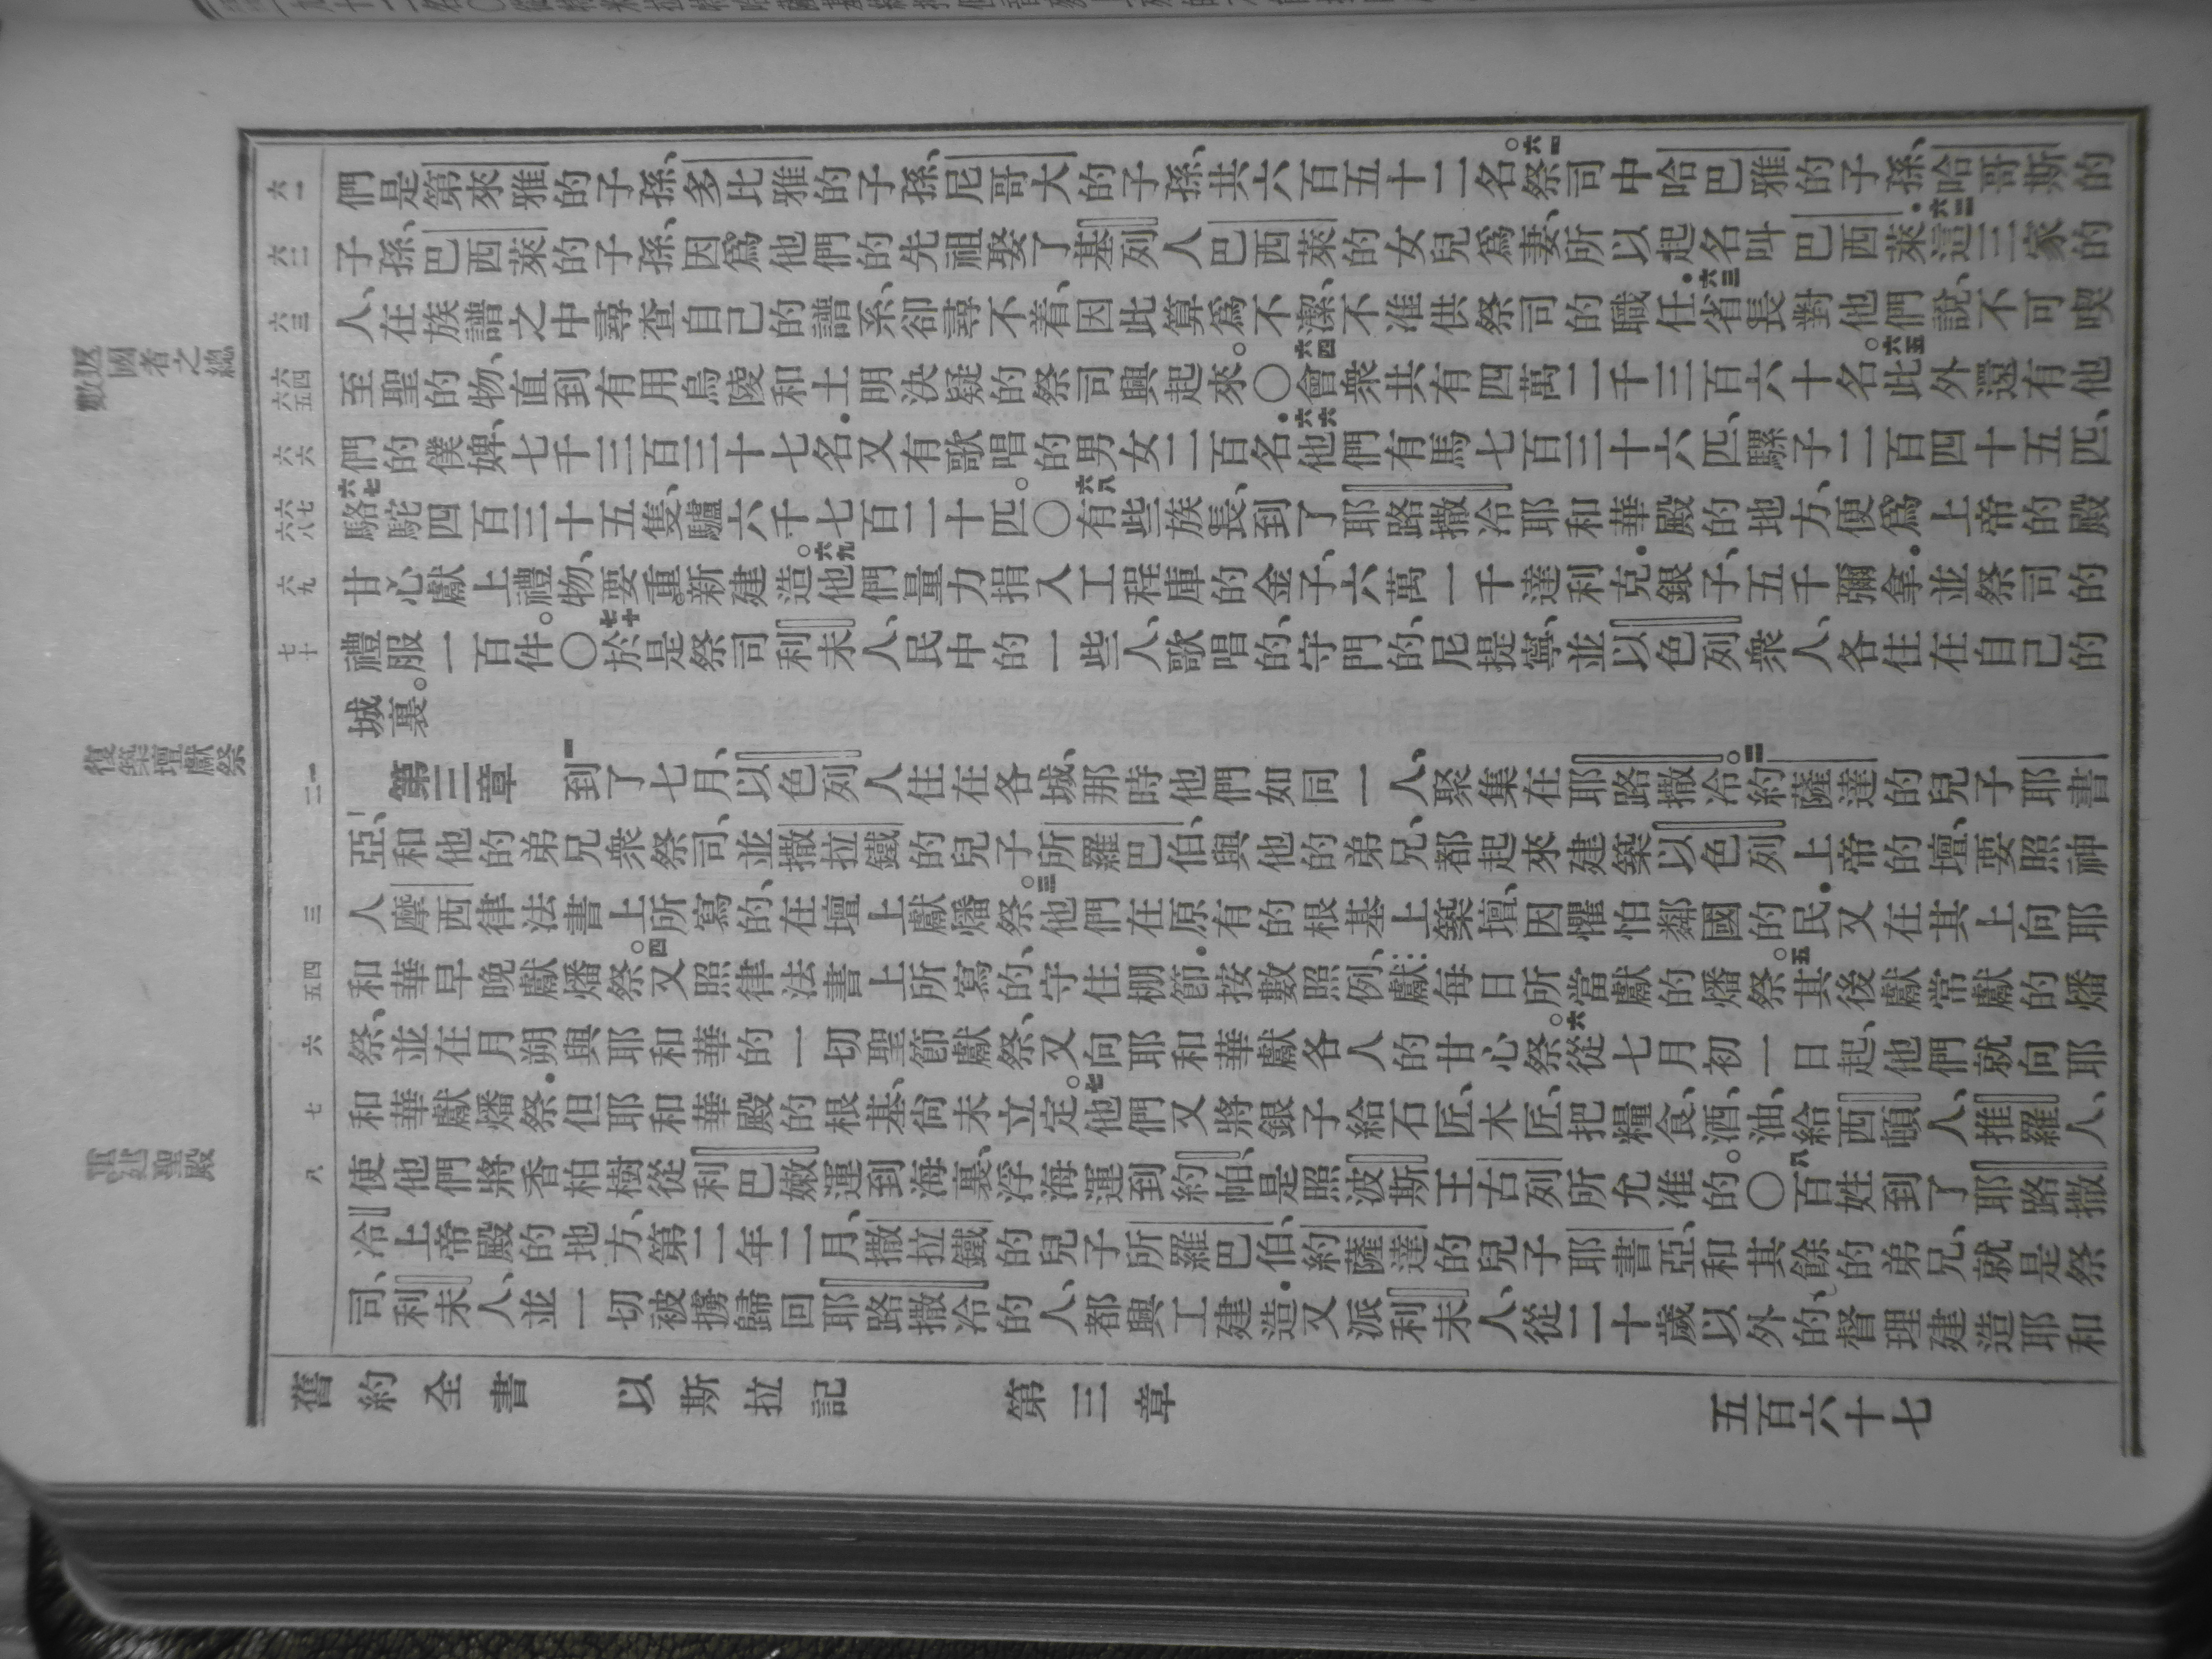 返國者之總數
復築壇獻祭
重建聖殿
六一
六二
六三
六四
六五
六六
六七
六八
六九
七十
一
二
三
四
五
六
七
八
們是第來雅的子孫、多比雅的子孫、尼哥大的子孫、共六百五十二名。六一祭司中哈巴雅的子孫、哈哥斯的
子孫、巴西萊的子孫、因爲他們的先祖娶了基列人巴西萊的女兒爲妻、所以起名叫巴西萊．六二這三家的
人、在族譜之中尋查自己的譜系、卻尋不着、因此算爲不潔、不准供祭司的職任．六三省長對他們說、不可喫
至聖的物、直到有用烏陵和土明決疑的祭司興起來。〇六四會衆共有四萬二千三百六十名。六五此外還有他
們的僕婢、七千三百三十七名．又有歌唱的男女二百名．六六他們有馬七百三十六匹、騾子二百四十五匹、
六七駱駝四百三十五隻、驢六千七百二十匹。〇六八有些族長、到了耶路撒冷耶和華殿的地方、便爲上帝的殿
甘心獻上禮物、要重新建造。六九他們量力捐入工程庫的金子、六萬一千達利克．銀子、五千彌拿．並祭司的
禮服一百件。〇七十於是祭司利未人、民中的一些人、歌唱的、守門的、尼提寧、並以色列衆人、各住在自己的
城裏。
第三章 一到了七月、以色列人住在各城、那時他們如同一人、聚集在耶路撒冷。二約薩達的兒子耶書
亞、和他的弟兄衆祭司、並撒拉鐵的兒子所羅巴伯、與他的弟兄、都起來建築以色列上帝的壇、要照神
人摩西律法書上所寫的、在壇上獻燔祭。三他們在原有的根基上築壇、因懼怕鄰國的民．又在其上向耶
和華早晚獻燔祭。四又照律法書上所寫的、守住棚節．按數照例、獻每日所當獻的燔祭。五其後獻常獻的燔
祭、並在月朔與耶和華的一切聖節獻祭、又向耶和華獻各人的甘心祭。六從七月初一日起、他們就向耶
和華獻燔祭．但耶和華殿的根基、尚未立定。七他們又將銀子給石匠、木匠、把糧食、酒、油、給西頓人、推羅人、
使他們將香柏樹從利巴嫩運到海裏、浮海運到約帕、是照波斯王古列所允准的。〇八百姓到了耶路撒
冷上帝殿的地方、第二年二月、撒拉鐵的兒子所羅巴伯、約薩達的兒子耶書亞、和其餘的弟兄、就是祭
司、利未人、並一切被擄歸回耶路撒冷的人、都興工建造．又派利未人、從二十歲以外的、督理建造耶和
舊約全書 以斯拉記 第三章 五百六十七